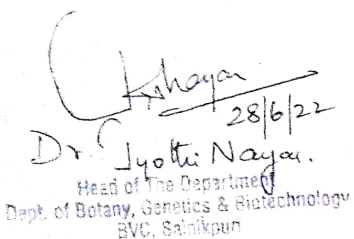 28/6/22
Dr Jyothi Nayar.
Head of The Department
Dept. of Botany, Genetics & Biotechnology
BVC, Sainikpuri